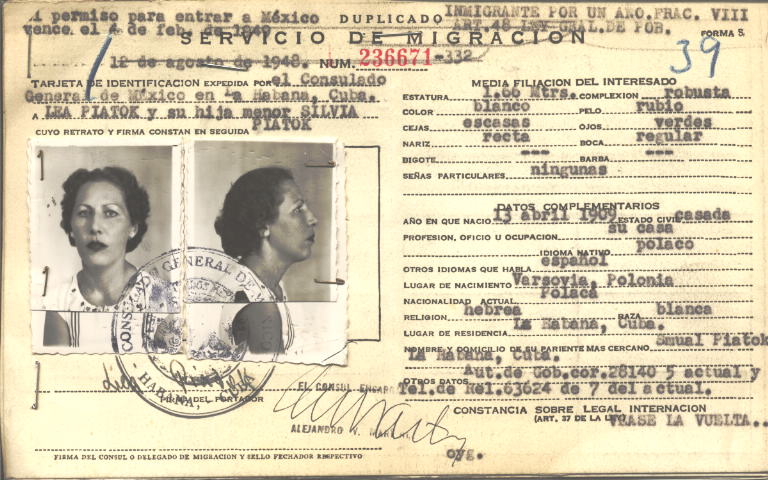 permiso para entrar a México
vence el 4 de feb. de 1949
DUPLICADO
INMIGRANTE POR UN AÑO.FRAC. VIII
ART.48 LEY GRAL.DE POB.
SERVICIO DE MIGRACION
FORMA 5.
39
12 de agosto de 1948.
NUM. 236671-332
TARJETA DE IDENTIFICACION EXPEDIDA POR el Consulado
General de México en La Habana, Cuba.
A LEA PIATOK y su hija menor SILVIA
PIATOK
CUYO RETRATO Y FIRMA CONSTAN EN SEGUIDA
MEDIA FILIACION DEL INTERESADO
ESTATURA 1.66 Mtrs. COMPLEXION robusta
COLOR blanco PELO rubio
CEJAS escasas OJOS verdes
NARIZ recta BOCA regular
BIGOTE --- BARBA ---
SEÑAS PARTICULARES ningunas
DATOS COMPLEMENTARIOS
AÑO EN QUE NACIO 13 abril 1909 ESTADO CIVIL casada
PROFESION, OFICIO U OCUPACION su casa
IDIOMA NATIVO polaco
OTROS IDIOMAS QUE HABLA español
LUGAR DE NACIMIENTO Varsovia, Polonia
NACIONALIDAD ACTUAL Polaca
RELIGION hebrea RAZA blanca
LUGAR DE RESIDENCIA La Habana, Cuba.
NOMBRE Y DOMICILIO DE SU PARIENTE MAS CERCANO Smual Piatok
La Habana, Cuba.
OTROS DATOS Aut.de Gob.cor.28140 5 actual y
Tel.de Rel.63624 de 7 del actual.
CONSTANCIA SOBRE LEGAL INTERNACION
(ART. 37 DE LA LEY) VEASE LA VUELTA..
CONSULADO GENERAL DE
HABANA,
FIRMA DEL PORTADOR
EL CONSUL ENCARG
ALEJANDRO V.
oyg.
FIRMA DEL CONSUL O DELEGADO DE MIGRACION Y SELLO FECHADOR RESPECTIVO